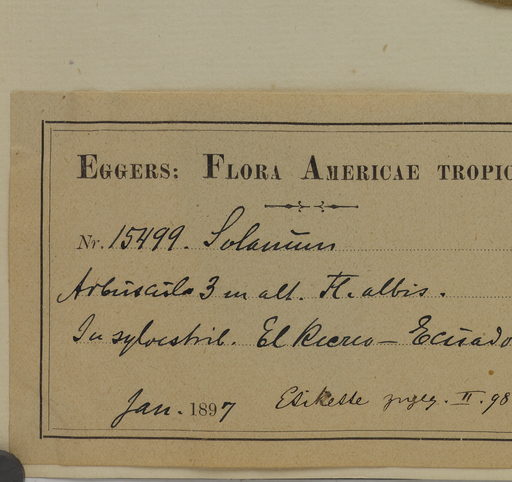 EGGERS: FLORA AMERICAE TROPIC
Nr. 15499. Solanum
Arbuscula 3 m alt. Fl. albis.
In sylvestrib. El Recreo — Ecuado
Jan. 1897 Etikette II. 98